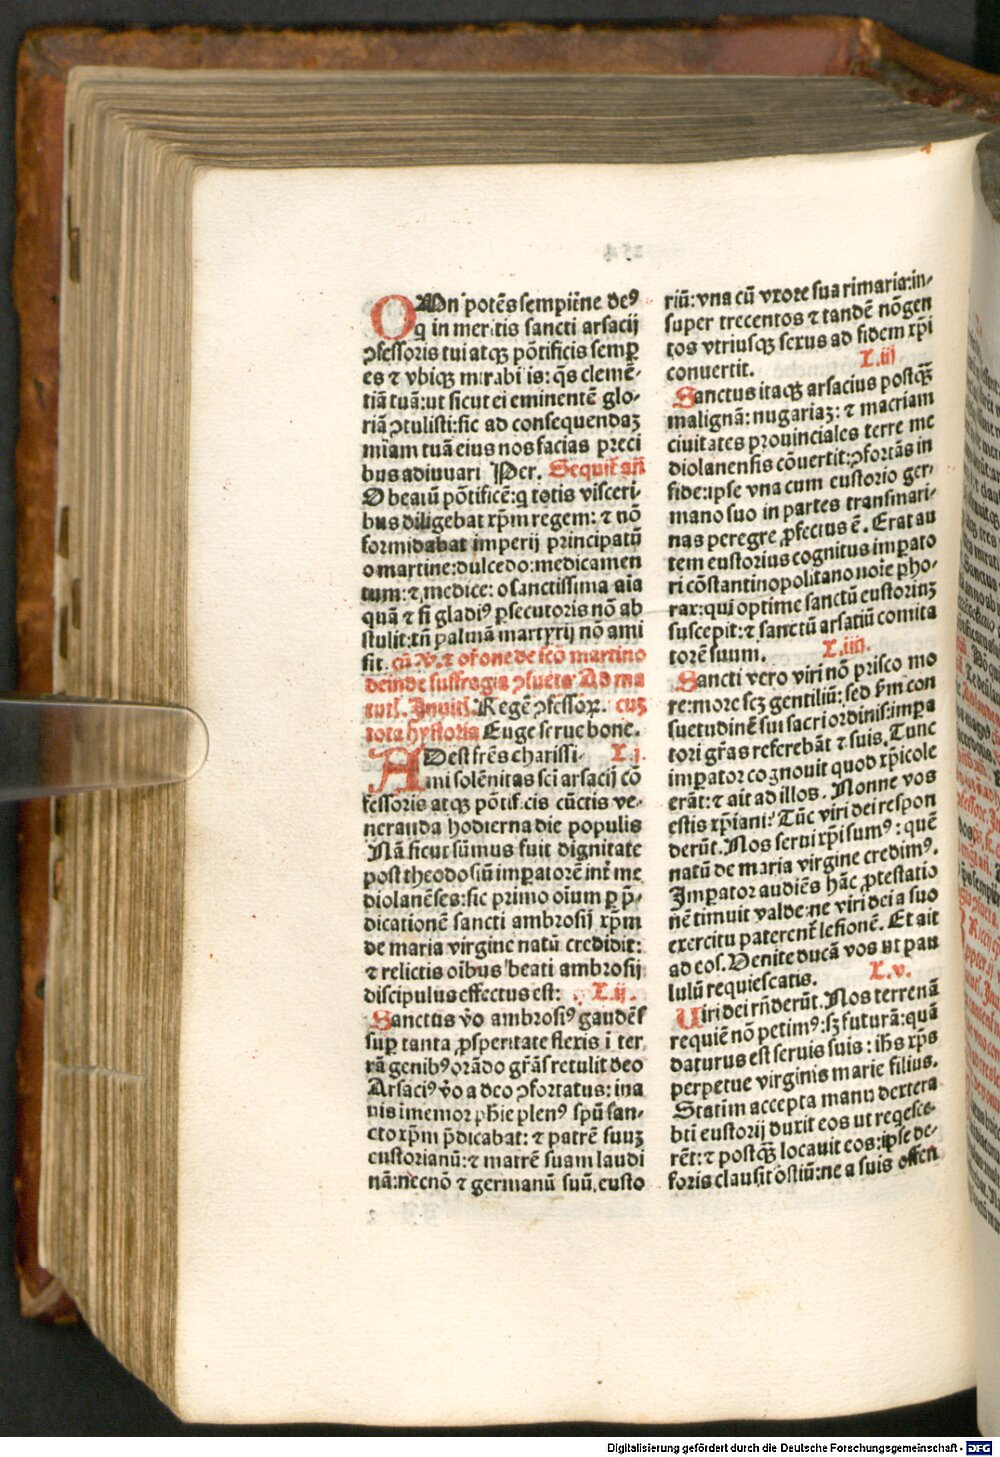 OMn potēs sempit̄ne deꝰ
q in meritis sancti arsacij
ꝯfessoris tui atqꝫ pōtificis semꝑ
es ⁊ vbiqꝫ mirabilis: q̄s clemē⸗
tiā tuā: ut sicut ei eminentē glo⸗
riā ꝯtulisti: sic ad consequendaꝫ
miam tuā eius nos facias preci
bus adiuuari Per. Sequit̄ an̄
O beatū pōtificē: q totis visceri⸗
bus diligebat xp̄m regem: ⁊ nō
formidabat imperij principatū
o martine: dulcedo: medicamen
tum: ⁊ medice: o sanctissima aīa
quā ⁊ si gladiꝰ ꝑsecutoris nō ab
stulit: tn̄ palmā martyrij nō ami
sit. cū V. ⁊ or̄one de sc̄o martino
deinde suffragia ꝯsueta Ad ma
tutī. Inuitī. Regē ꝯfessoꝝ. cuꝫ
tota hystoria Euge serue bone.
ADest fr̄es charissi⸗ L.j.
mi solēnitas sci arsacij cō
fessoris atqꝫ pōtificis cūctis ve⸗
neranda hodierna die populis
Nā sicut sūmus fuit dignitate
post theodosiū imꝑatorē int̄ me
diolanēses: sic primo oīum ꝑ p̄⸗
dicationē sancti ambrosij xp̄m
de maria virgine natū credidit:
⁊ relictis oībus beati ambrosij
discipulus effectus est: L.ij.
Sanctus v̄o ambrosiꝰ gaudēs
suꝑ tanta ꝓsperitate flexis ī ter
rā genibꝰ orādo gr̄as retulit deo
Arsaciꝰ v̄o a deo ꝯfortatus: ina
nis imemor ph̄ie plenꝰ spū san⸗
cto xp̄m p̄dicabat: ⁊ patrē suuꝫ
eustorianū: ⁊ matrē suam laudi
nā: necnō ⁊ germanū suū, eusto
riū: vna cū vxore sua rimaria: in⸗
super trecentos ⁊ tandē nōgen
tos vtriusqꝫ sexus ad fidem xp̄i
conuertit. L.iij
Sanctus itaqꝫ arsacius postqꝫ̄
malignā: nugariaꝫ: ⁊ macriam
ciuitates prouinciales terre me
diolanensis cōuertit: ꝯfortās in
fide: ipse vna cum eustorio ger⸗
mano suo in partes transmari⸗
nas peregre ꝓfectus ē. Erat au
tem eustorius cognitus imꝑato
ri cōstantinopolitano noīe pho⸗
rax: qui optime sanctū eustoriuꝫ
suscepit: ⁊ sanctū arsatiū comita
torē suum. L.iiij.
Sancti vero viri nō prisco mo
re: more scꝫ gentiliū: sed s̄m con
suetudinē sui sacri ordinis: imꝑa
tori gr̄as referebāt ⁊ suis. Tunc
imꝑator cognouit quod xp̄icole
erāt: ⁊ ait ad illos. Nonne vos
estis xp̄iani? Tūc viri dei respon
derūt. Nos serui xp̄i sumꝰ: quē
natū de maria virgine credimꝰ.
Imꝑator audiēs hāc ꝓtestatio
nē timuit valde: ne viri dei a suo
exercitu paterent̄ lesionē. Et ait
ad eos. Venite ducā vos ut pau
lulū requiescatis. L.v.
Uiri dei rn̄derūt. Nos terrenā
requiē nō petimꝰ: sꝫ futurā: quā
daturus est seruis suis: ih̄s xp̄s
perpetue virginis marie filius.
Statim accepta manu dextera
bt̄i eustorij duxit eos ut reqesce⸗
rēt: ⁊ postqꝫ̄ locauit eos: ip̄se de⸗
foris clausit ostiū: ne a suis offen
Digitalisierung gefördert durch die Deutsche Forschungsgemeinschaft - DFG